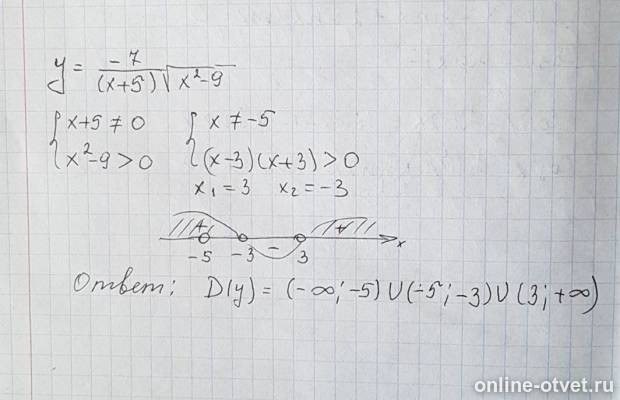 y = -7 / (x+5)√x²-9
{ x+5 ≠ 0 { x ≠ -5
{ x²-9 > 0 { (x-3)(x+3) > 0
x₁ = 3 x₂ = -3
+ - +
-5 -3 3 x
Ответ: D(y) = (-∞; -5) ∪ (-5; -3) ∪ (3; +∞)
online-otvet.ru